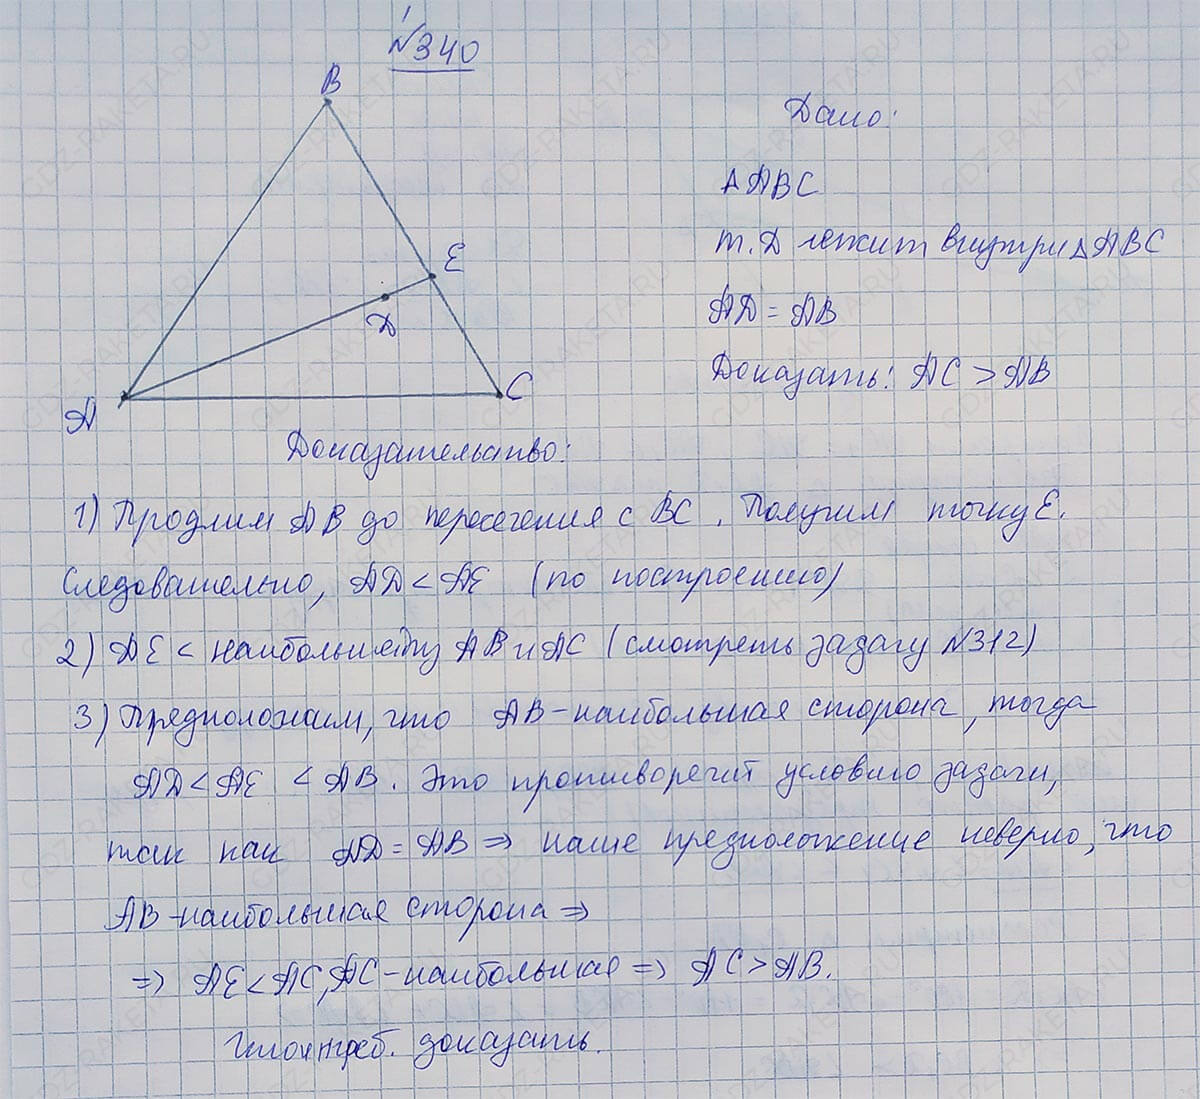 №340
B
E
D
A
C
Дано:
△ABC
т. D лежит внутри △ABC
AD = AB
Доказать: AC > AB
Доказательство:
1) Продлим AB до пересечения с BC. Получим точку E.
Следовательно, AD < AE (по построению)
2) AE < наибольшей из AB и AC (смотреть задачу №312)
3) Предположим, что AB - наибольшая сторона, тогда
AD < AE < AB. Это противоречит условию задачи,
так как AD = AB ⇒ наше предположение неверно, что
AB - наибольшая сторона ⇒
⇒ AE < AC, AC - наибольшая ⇒ AC > AB.
доказать.
GDZ-RAKETA.RU